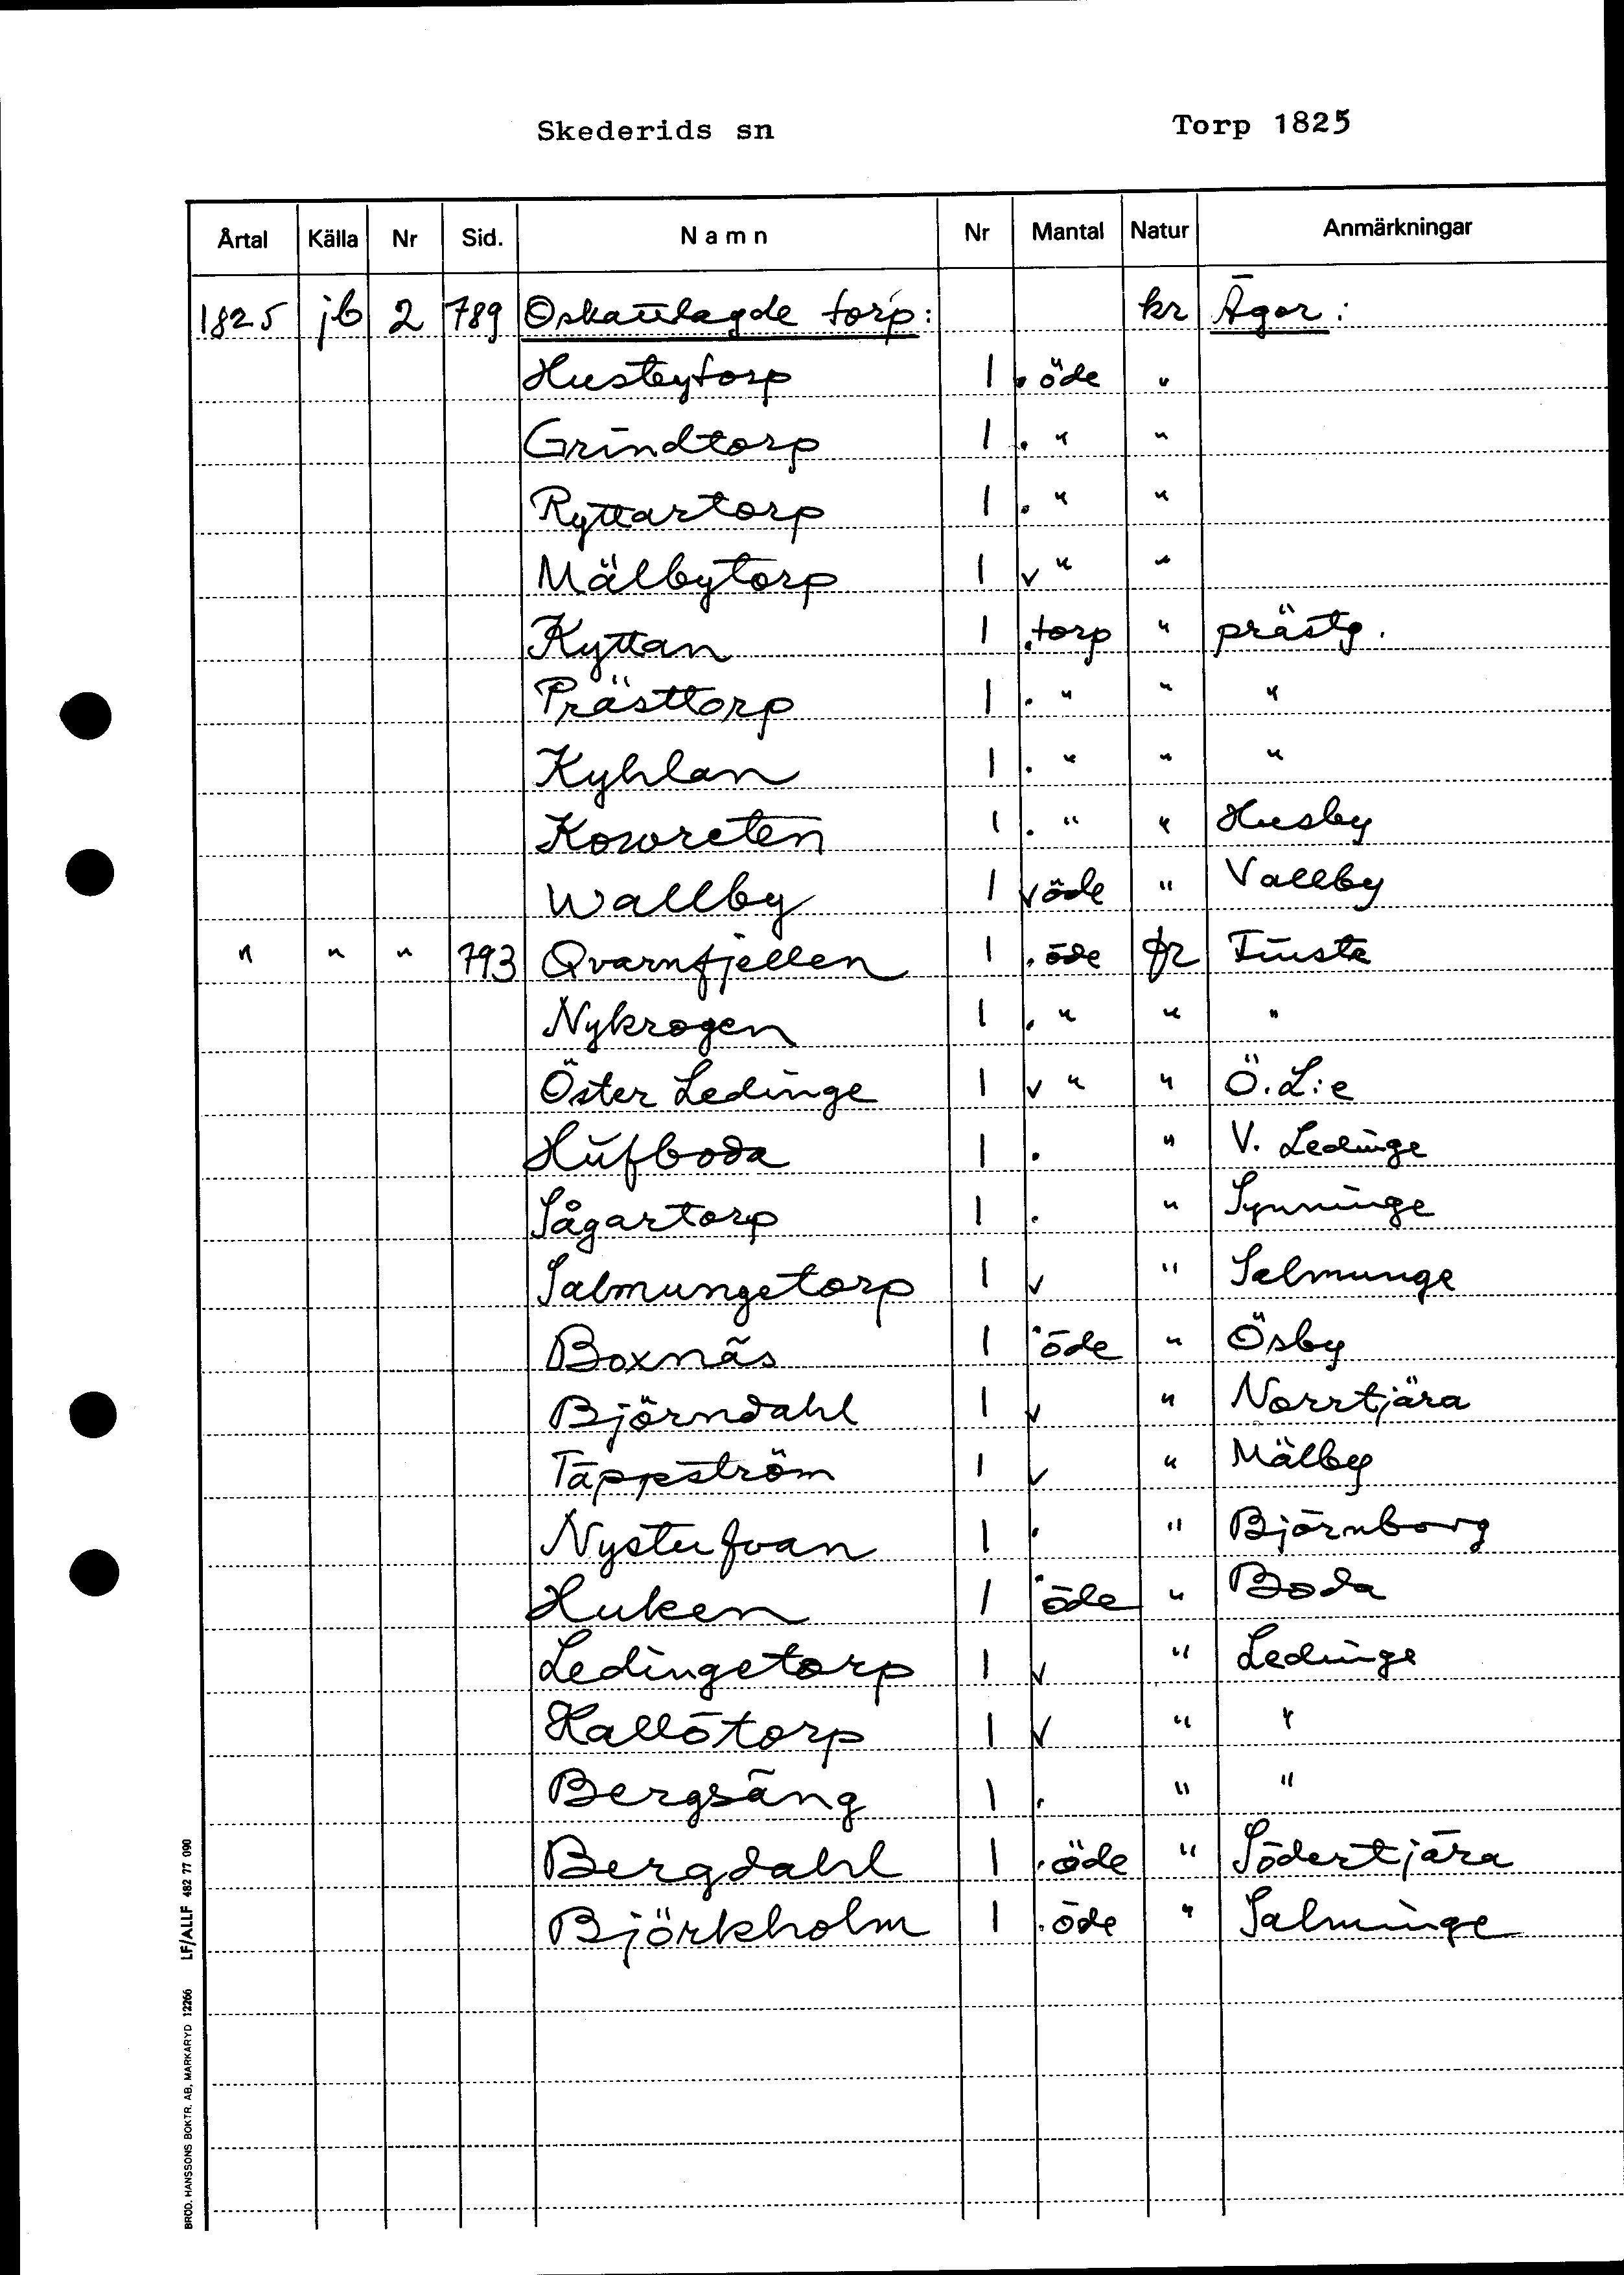 Skederids sn Torp 1825
Årtal Källa Nr Sid. Namn Nr Mantal Natur Anmärkningar
1825 jb 2 789 Oskattlagde torp: kr Ägor:
Husbytorp 1 . öde "
Grindtorp 1 . " "
Ryttartorp 1 . " "
Mälbytorp 1 v " "
Kyttan 1 . torp " prästg.
Prästtorp 1 . " " "
Kyhlan 1 . " " "
Kowreten 1 . " " Husby
Wallby 1 v öde " Vallby
" " " 793 Qvarnfjellen 1 . öde fr Finsta
Nykrogen 1 . " " "
Öster Ledinge 1 v " " Ö. L:e
Hufboda 1 . " V. Ledinge
Sågartorp 1 . " Synninge
Salmungetorp 1 v " Salmunge
Boxnäs 1 . öde " Ösby
Björndahl 1 v " Norrtjära
Täppström 1 v " Mälby
Nystufvan 1 . " Björnborg
Huken 1 . öde " Boda
Ledingetorp 1 v " Ledinge
Hallötorp 1 v " "
Bergsäng 1 . " "
Bergdahl 1 . öde " Södertjära
Björkholm 1 . öde " Salminge
BROD. HANSSONS BOKTR. AB, MARKARYD 12266 LF/ALLF 482 77 090